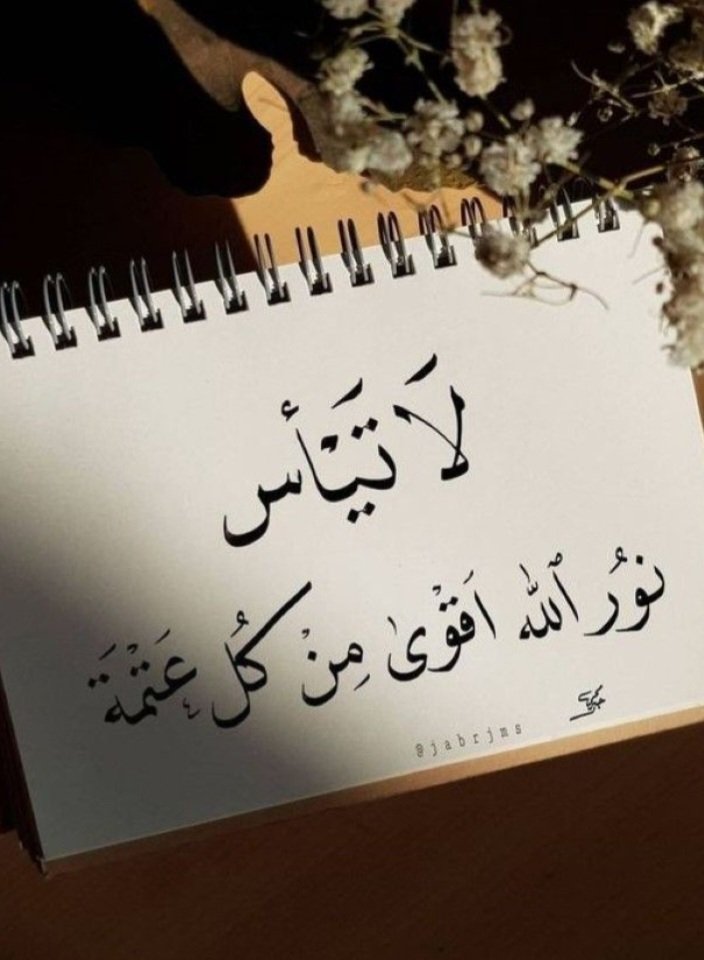 لَا تَيْأَس
نُور ٱللّٰه اَقْوىٰ مِنْ كُل عَتْمَة
@jabrjms